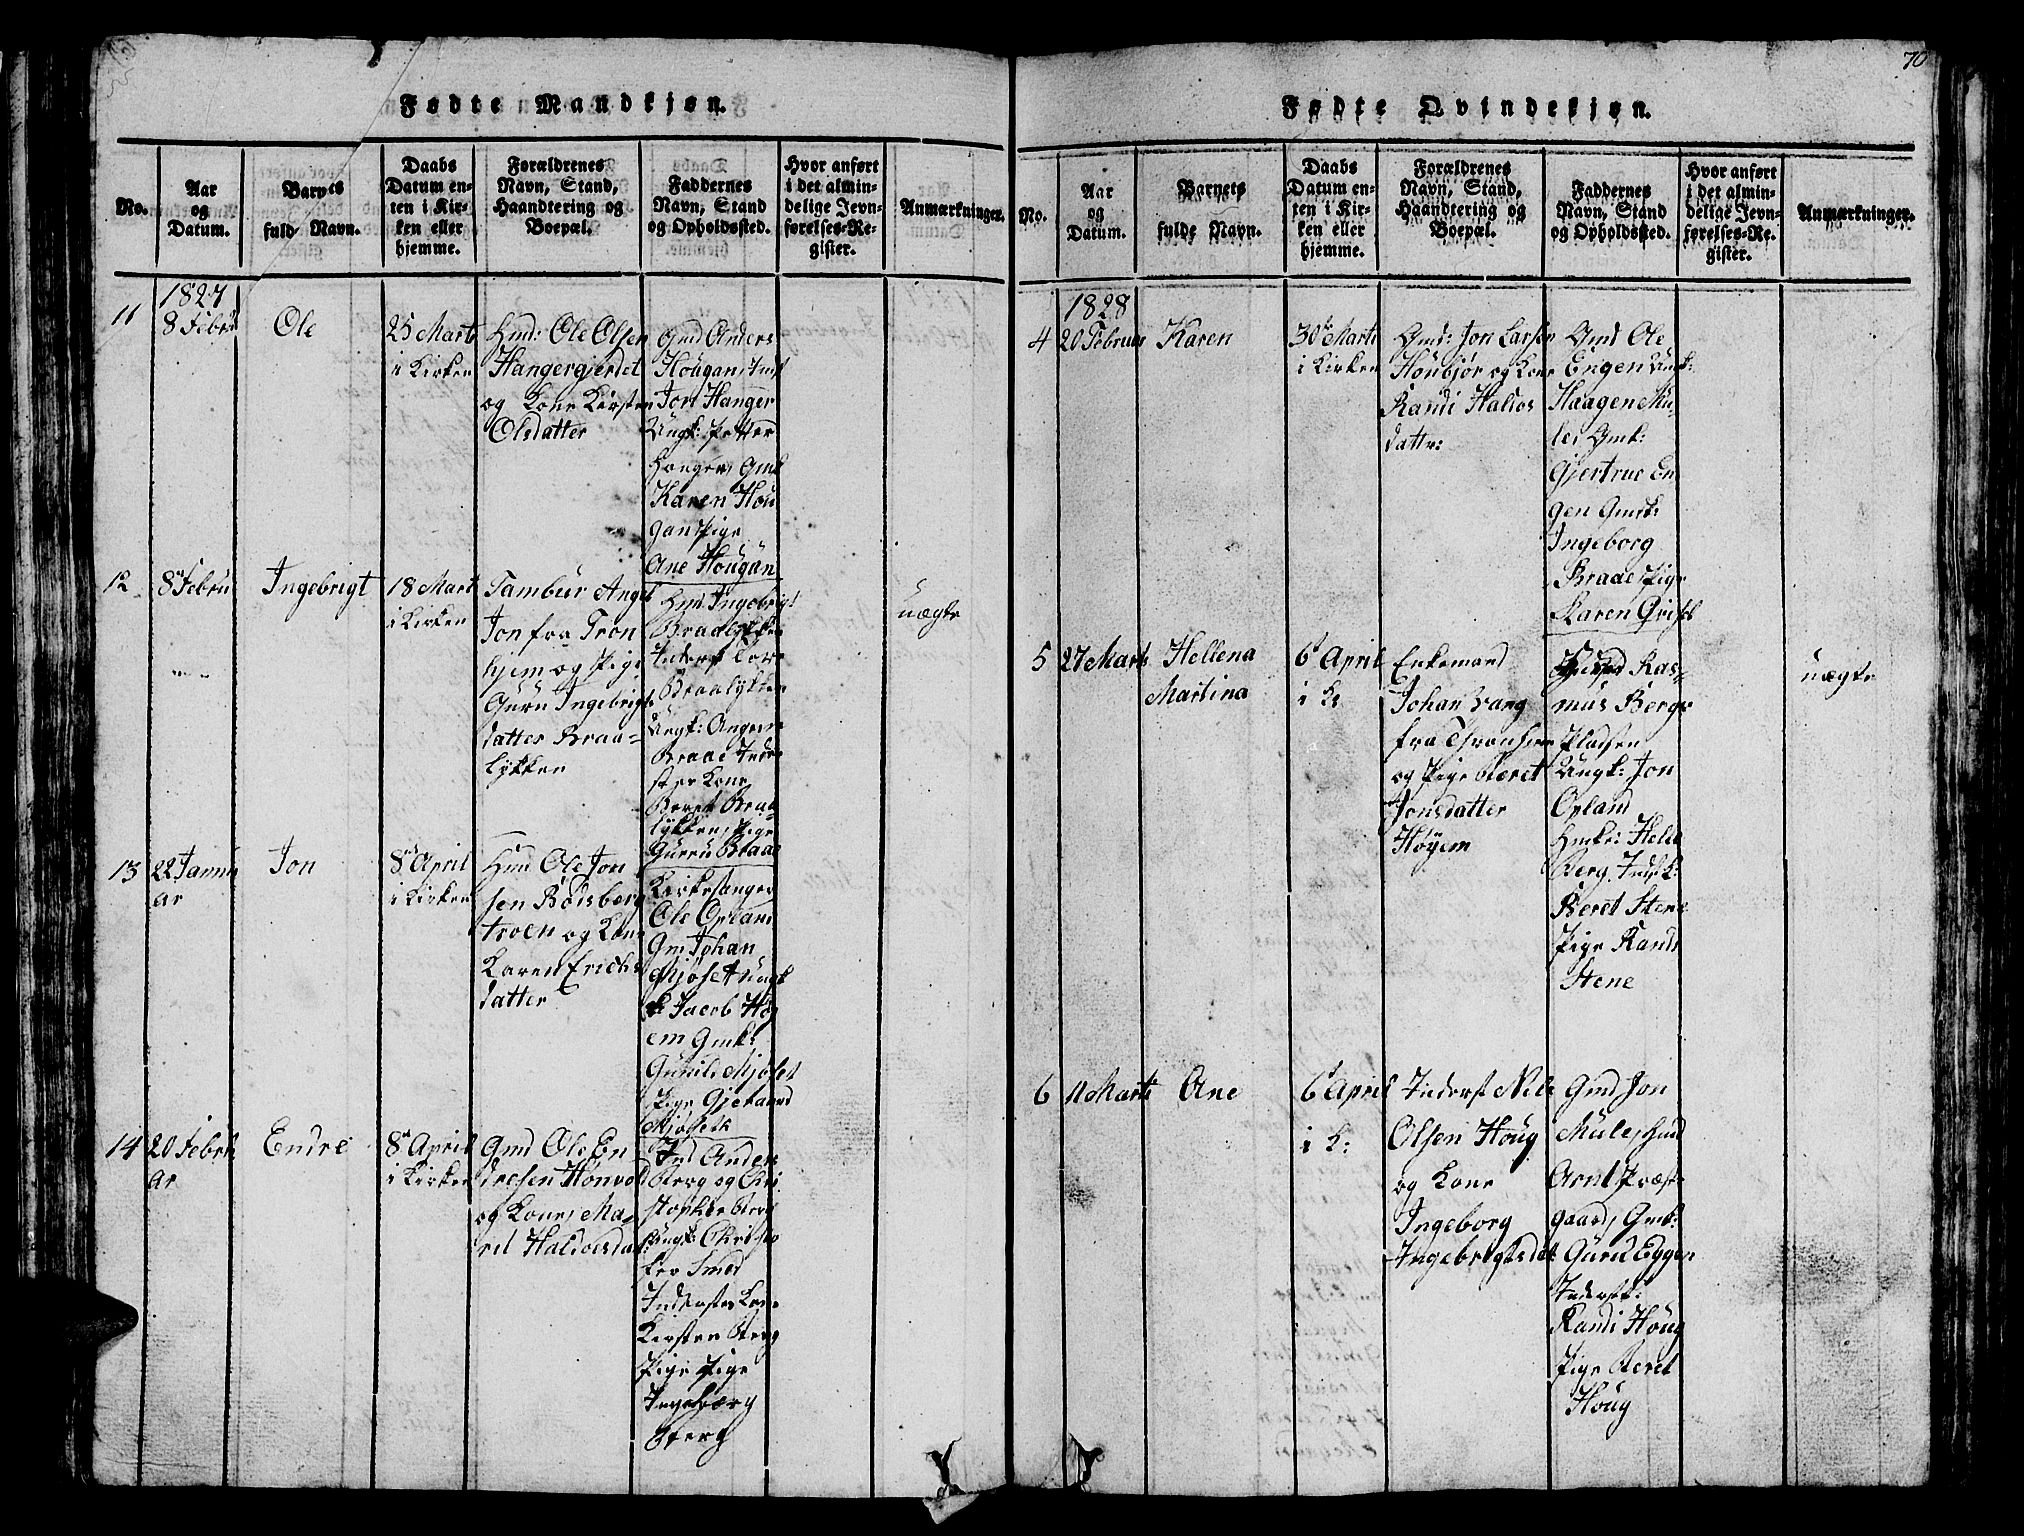 70
Fødte Mandkjøn.
No.
Aar
og
Datum.
Barnets
fulde Navn.
Daabs
Datum en-
ten i Kir-
ken eller
hjemme.
Forældrenes
Navn, Stand,
Haandtering og
Boepæl.
Faddernes
Navn, Stand
og Opholdssted.
Hvor anført
i det almin-
delige Jevn-
førelses-Re-
gister.
Anmærkninger.
11
1827
8 Febru
Ole
25 Marts
i Kirken
Hmd: Ole Olsen
Hangergjerdet
og Kone Kirsten
Olsdatter
Gmd Anders
Hougan, Inst
Jon Hanger
Ungk: Petter
Honger, Gmk
Karen Hou
gan Pige
Ane Hougan
12
8 Febru
Ingebrigt
18 Mart
i Kirken
Tambur Angel
Jon fra Tron
hjem og Pige
Guru Ingebrigts
datter Braa-
lykken
Hmd Ingebrigt
Braalykken
Inderst Tore
Braalykken
Ungk: Angem
Braae Inder
ster Kone
Beret Braa
lykken, Pige
Gurru Braae
uægte
13
22 Janu
ar
Jon
8 April
i Kirken
Hmd Ole Jon
sen Boisberg
troen og Kone
Karen Erichs
datter
Kirkesanger
Ole Opland
Gm Johan
Mjøset Ungk
Jacob Høy
em Gmk:
Gunil Mjøset
Pige Gjertrud
Mjøseth
14
20 Febru
ar
Endre
8 April
i Kirken
Gmd Ole En
dresen Honvold
og Kone, Ma-
rit Haldoesdat
Ind Anders
Berg og Chri
stopher Berg
Ungk: Christo
fer Smed
Inderstes Kone
Kirsten Berg
Pige Pige
Ingeborg
Berg
Fødte Qvindekjøn.
No.
Aar
og
Datum.
Barnets
fulde Navn.
Daabs
Datum en-
ten i Kir-
ken eller
hjemme.
Forældrenes
Navn, Stand,
Haandtering og
Boepæl.
Faddernes
Navn, Stand
og Opholdssted.
Hvor anført
i det almin-
delige Jevn-
førelses-Re-
gister.
Anmærkninger.
4
1828
20 Februar
Karen
30 Marts
i Kirken
Gmd: Jon Larsen
Houbjør og Kone
Randi Haldos
datter:
Gmd Ole
Engen Ungk:
Haagen Mu-
les Gmk:
Gjertrue En
gen Gmk:
Ingeborg
Braae Pige
Karen Qvist
5
27 Marts
Hellena
Martina
6 April
i K
Enkemand
Johan Vang
fra Tronhiem
og Pige Beret
Jonsdatter
Høyem
Ras-
mus Bergs
Pladsen
Ungk: Jon
Opland
Hmk: Hele
Berg, Indst K:
Beret Stene
Pige Randi
Stene
uægte
6
11 Marts
Ane
6 April
i K:
Inderst Nils
Olsen Houg
og Kone
Ingeborg
Ingebrigtsdat
Gmd Jon
Mule, Hmd
Arnt Præst
gaard, Gmk:
Guru Eggen
Inderst:
Randi Houg
Pige Beret
Houg